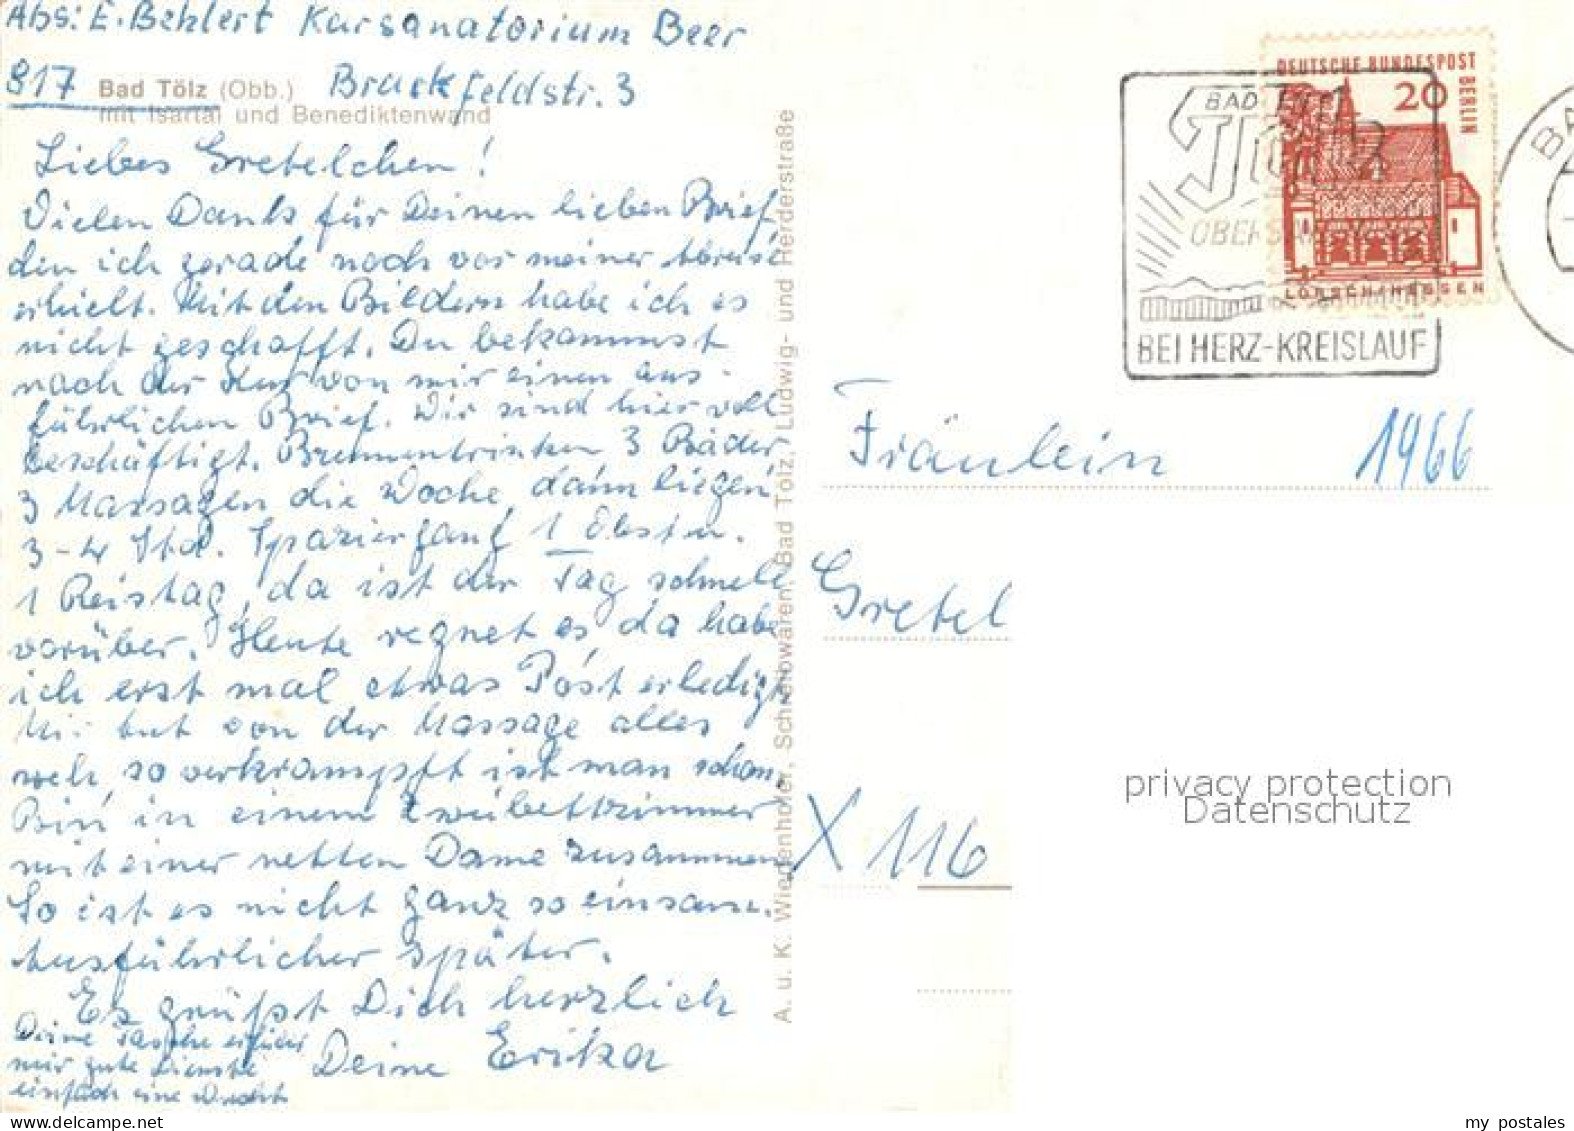 Abs: E. Behlert Kursanatorium Beer
817 Bad Tölz (Obb.) Bruckfeldstr. 3
mit Isartal und Benediktenwand
Liebes Gretelchen!
Vielen Dank für Deinen lieben Brief,
den ich gerade noch vor meiner Abreise
erhielt. Mit den Bildern habe ich es
nicht geschafft. Du bekommst
nach der Kur von mir einen aus-
führlichen Brief. Wir sind hier voll
beschäftigt. Brunnentrinken 3 Bäder,
3 Massagen die Woche, dann liegen,
3-4 Std. Spaziergang 1 Obstn.
1 Reistag, da ist der Tag schnell
vorüber. Heute regnet es, da habe
ich erst mal etwas Post erledigt.
Mir tut von der Massage alles
weh, so verkrampft ist man schon.
Bin in einem Zweibettzimmer
mit einer netten Dame zusammen.
So ist es nicht ganz so einsam.
Ausführlicher später.
Es grüßt Dich herzlich
Deine Erika
Deine Tasche
mir gute Dienste
einfach eine
A. u. K. Wiedenhofer, Schreibwaren, Bad Tölz, Ludwig- und Herderstraße
BAD
Tölz
BEI HERZ-KREISLAUF
DEUTSCHE BUNDESPOST
BERLIN
20
LORSCH/HESSEN
BA
Fräulein 1966
Gretel
X 116
privacy protection
Datenschutz
my postales